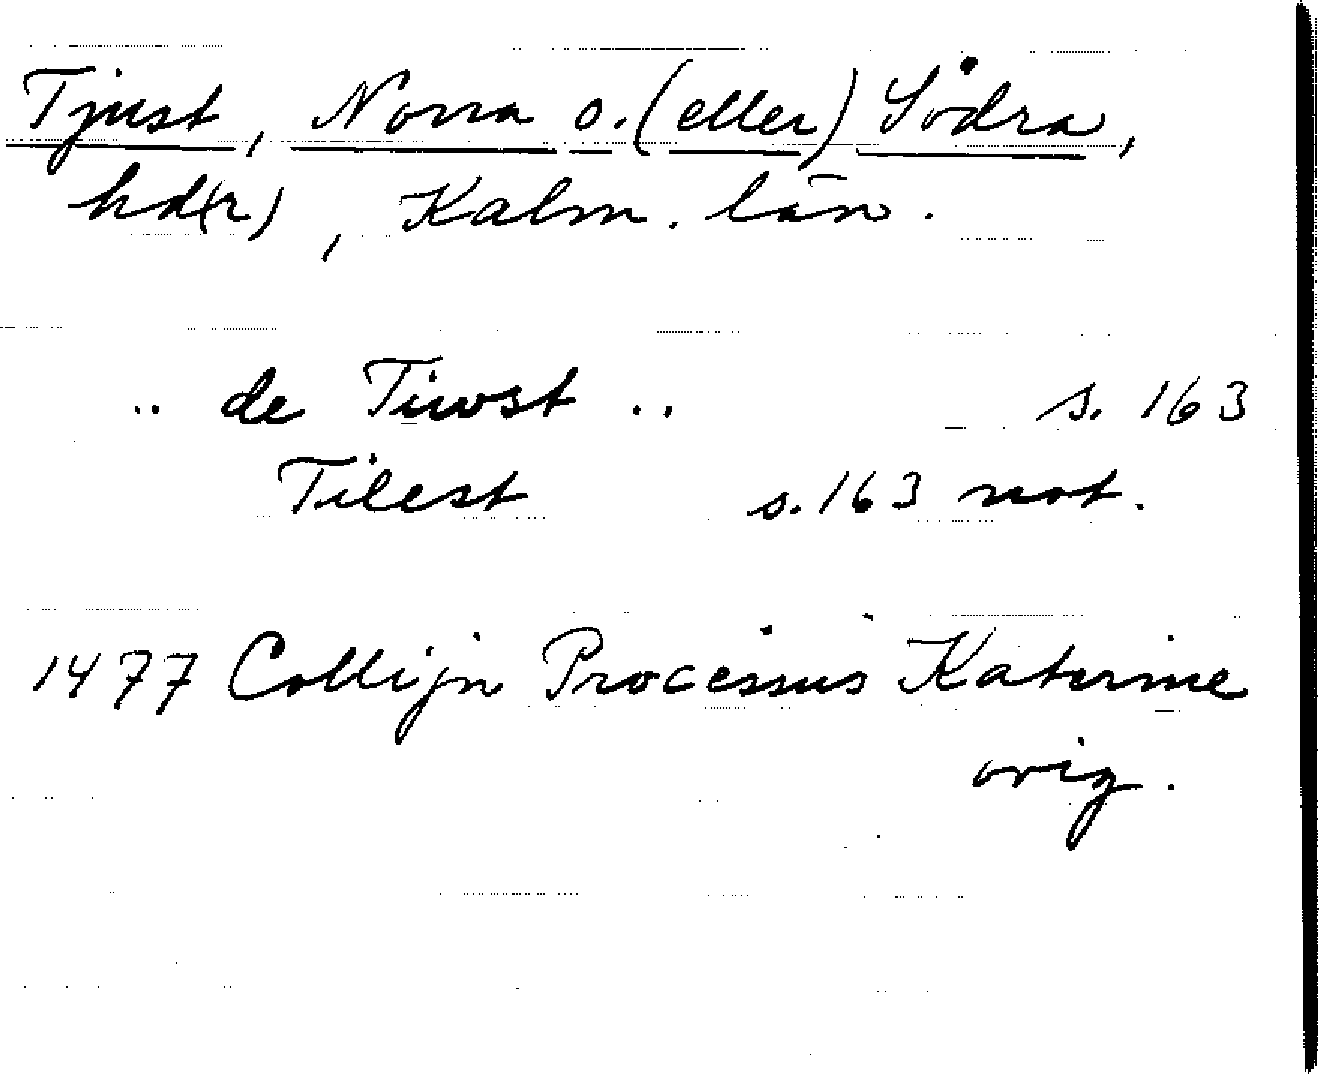 Tjust, Norra o. (eller) Södra,
hd(r), Kalm. län.
.. de Tiwst .. s. 163
Tilest s. 163 not.
1477 Collijn Processus Katerine
orig.